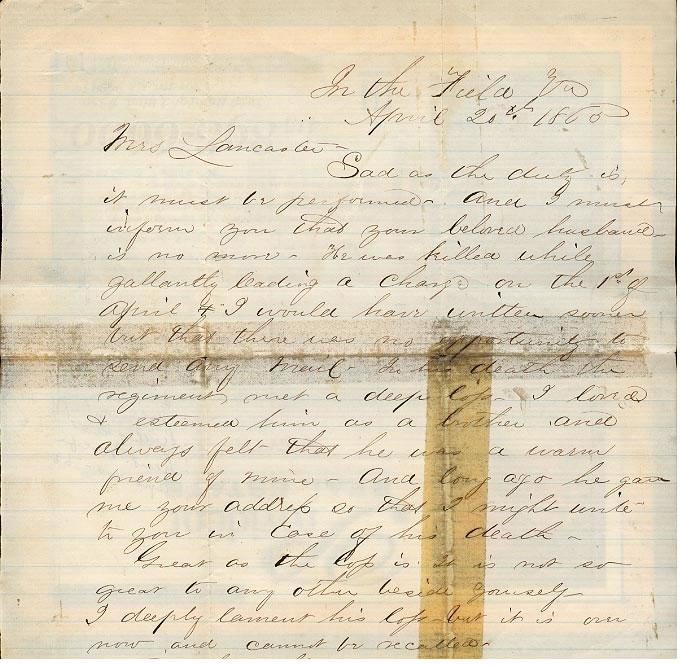 In the Field Va
April 20th 1865
Mrs Lancaster -
Sad as the duty is,
it must be performed - and I must
inform you that your beloved husband -
is no more - He was killed while
gallantly leading a charge on the 1st of
April & I would have written sooner
but that there was no opportunity to
send any mail - In his death the
regiment met a deep loss - I loved
& esteemed him as a brother and
always felt that he was a warm
friend of mine - And long ago he gave
me your address so that I might write
to you in case of his death -
Great as the loss is it is not so
great to any other beside yourself
I deeply lament his loss - but it is over
now and cannot be recalled -